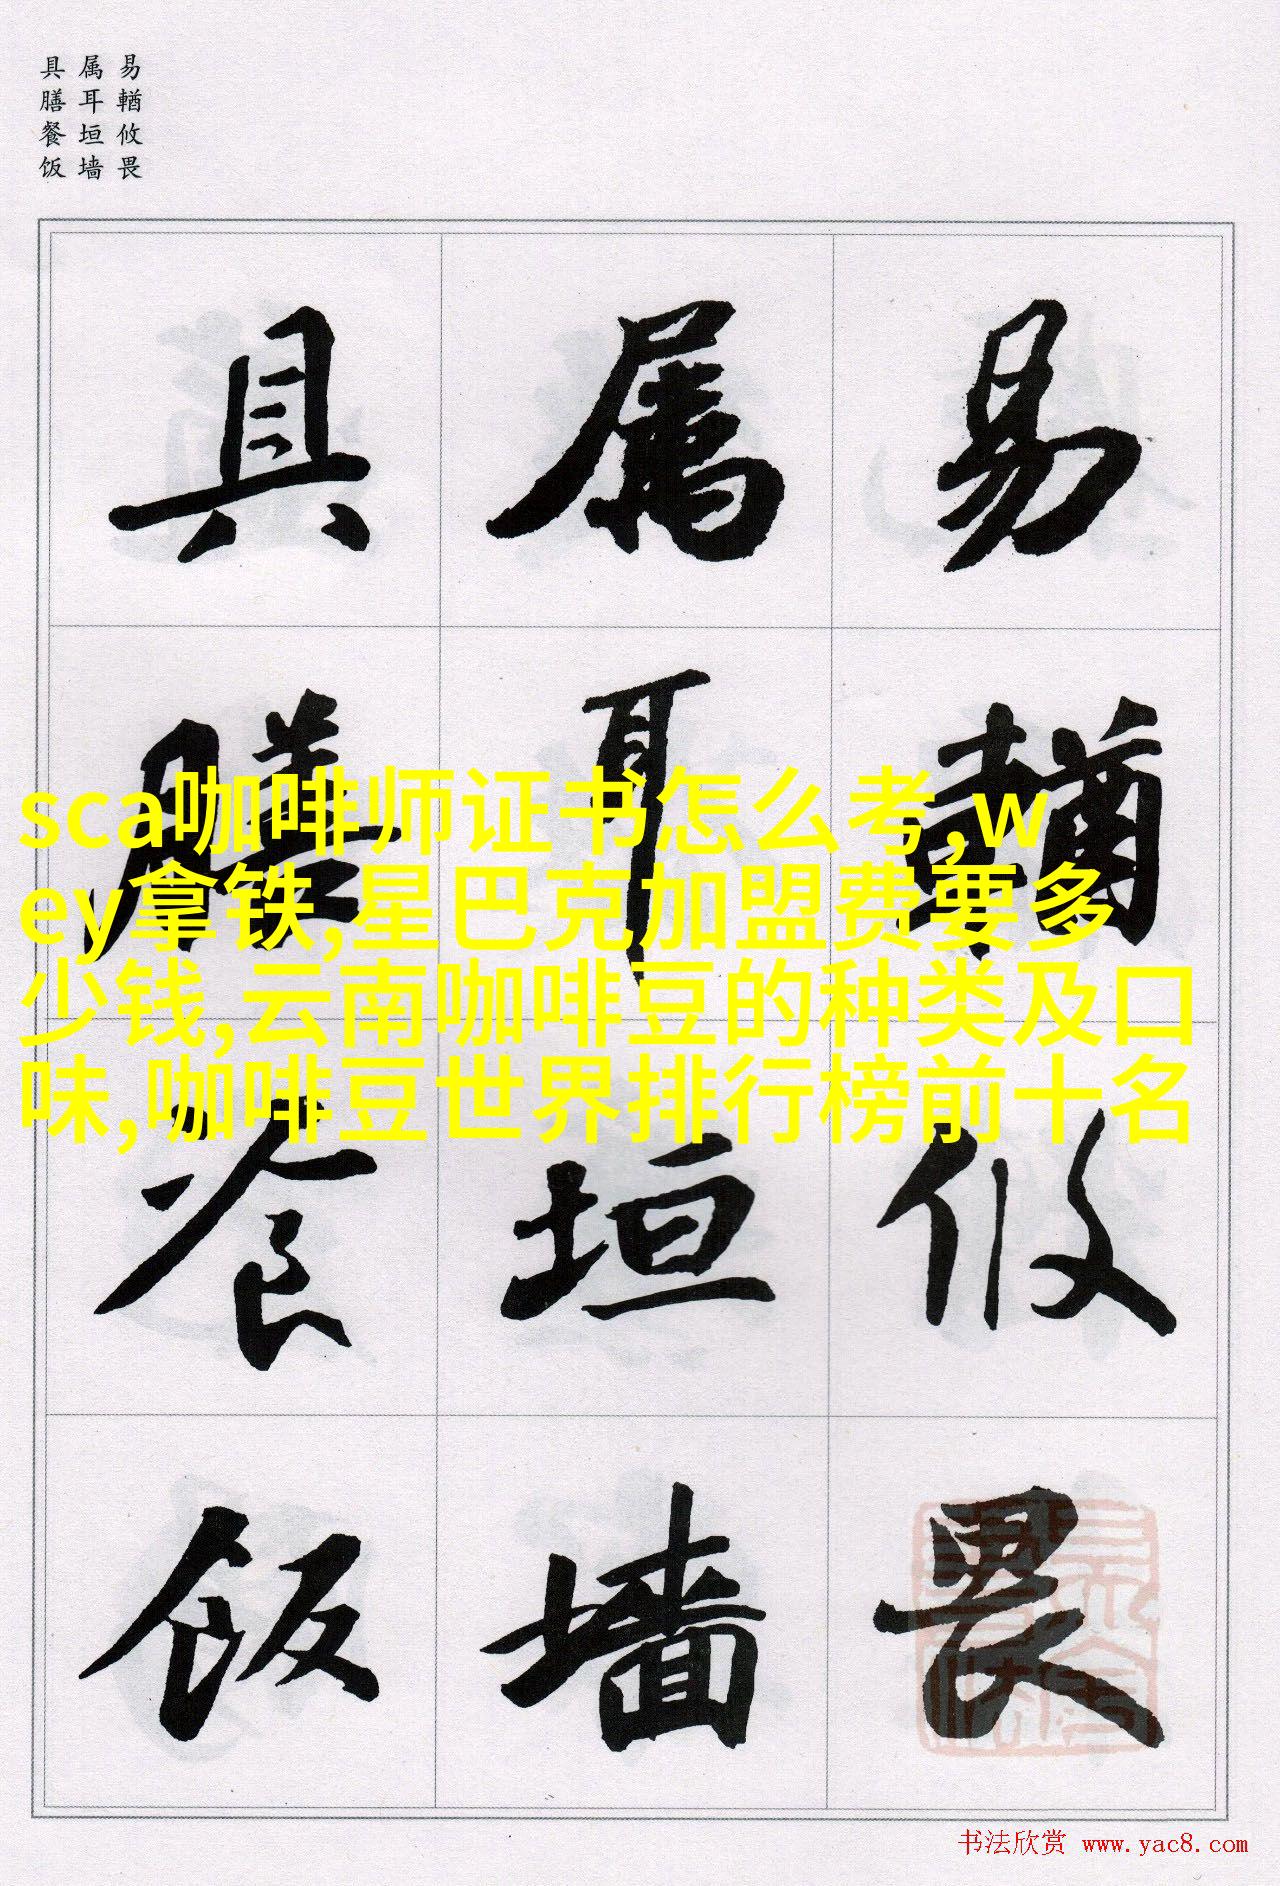 易輶攸畏
属耳垣墙
具膳餐饭
易輶攸畏
属耳垣墙
具膳飡饭
sca咖啡师证书怎么考,w
ey拿铁,星巴克加盟费要多
少钱,云南咖啡豆的种类及口
味,咖啡豆世界排行榜前十名
书法欣赏 www.yac8.com